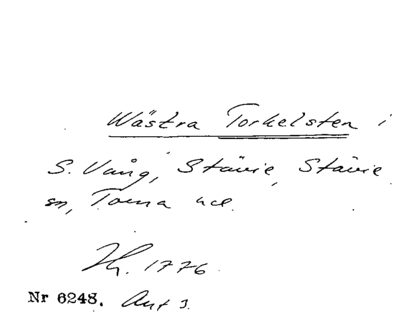 Wästra Torkelsten i
S. Vång, Stävie, Stävie
sn, Torna hd.
Th. 1776.
Nr 6248. Ant 3.